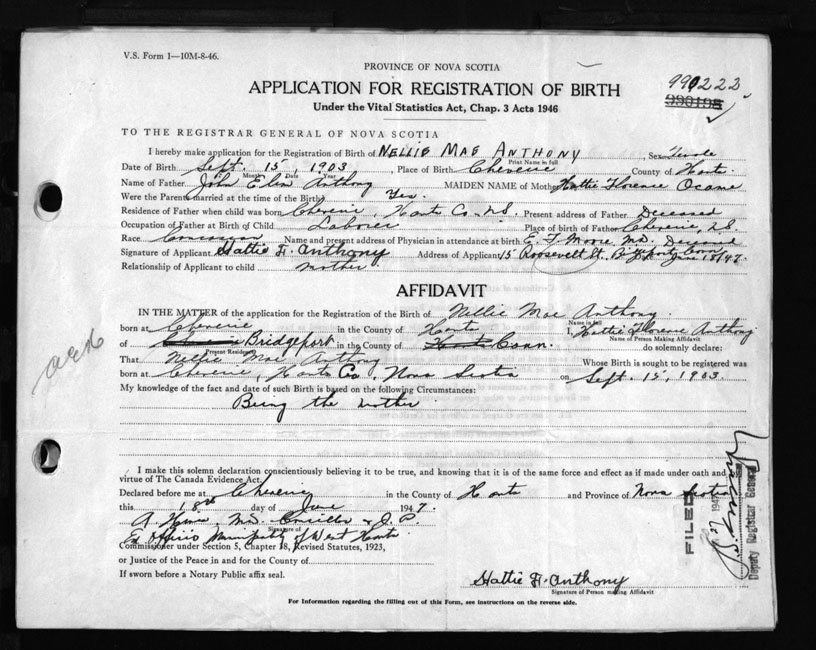 V.S. Form 1—10M-8-46.
PROVINCE OF NOVA SCOTIA
990222
990195
APPLICATION FOR REGISTRATION OF BIRTH
Under the Vital Statistics Act, Chap. 3 Acts 1946
TO THE REGISTRAR GENERAL OF NOVA SCOTIA
I hereby make application for the Registration of Birth of NELLIE MAE ANTHONY Sex
Print Name in full
Date of Birth Sept. 15, 1903, Place of Birth Cheverie County of Hants.
Month Day Year
Name of Father John Anthony MAIDEN NAME of Mother Hattie Florence
Were the Parents married at the time of the Birth? Yes.
Residence of Father when child was born Cheverie, Hants Co. N.S. Present address of Father Deceased
Occupation of Father at Birth of Child Laborer Place of birth of Father Cheverie, N.S.
Race Name and present address of Physician in attendance at birth E. F. Moore, MD. Deceased
Signature of Applicant Hattie F. Anthony Address of Applicant 15 Roosevelt St. June 18/47.
Relationship of Applicant to child mother
AFFIDAVIT
IN THE MATTER of the application for the Registration of the Birth of Nellie Mae Anthony
Name in full
born at Cheverie in the County of Hants I, Hattie Florence Anthony
Name of Person Making Affidavit
of Cheverie Bridgeport in the County of Hants Conn. do solemnly declare:
Present Residence
That Nellie Mae Anthony Whose Birth is sought to be registered was
born at Cheverie, Hants Co, Nova Scotia on Sept. 15, 1903.
My knowledge of the fact and date of such Birth is based on the following Circumstances:
Being the mother
I make this solemn declaration conscientiously believing it to be true, and knowing that it is of the same force and effect as if made under oath and by
virtue of The Canada Evidence Act.
Declared before me at Cheverie in the County of Hants and Province of Nova Scotia
this 18th day of June 1947.
MD. Councillor & J. P.
Signature of
Ex Officio Municipality of West Hants
Commissioner under Section 5, Chapter 18, Revised Statutes, 1923,
or Justice of the Peace in and for the County of
If sworn before a Notary Public affix seal.
Hattie F. Anthony
Signature of Person making Affidavit
For Information regarding the filling out of this Form, see instructions on the reverse side.
FILED
1947
Deputy Registrar General